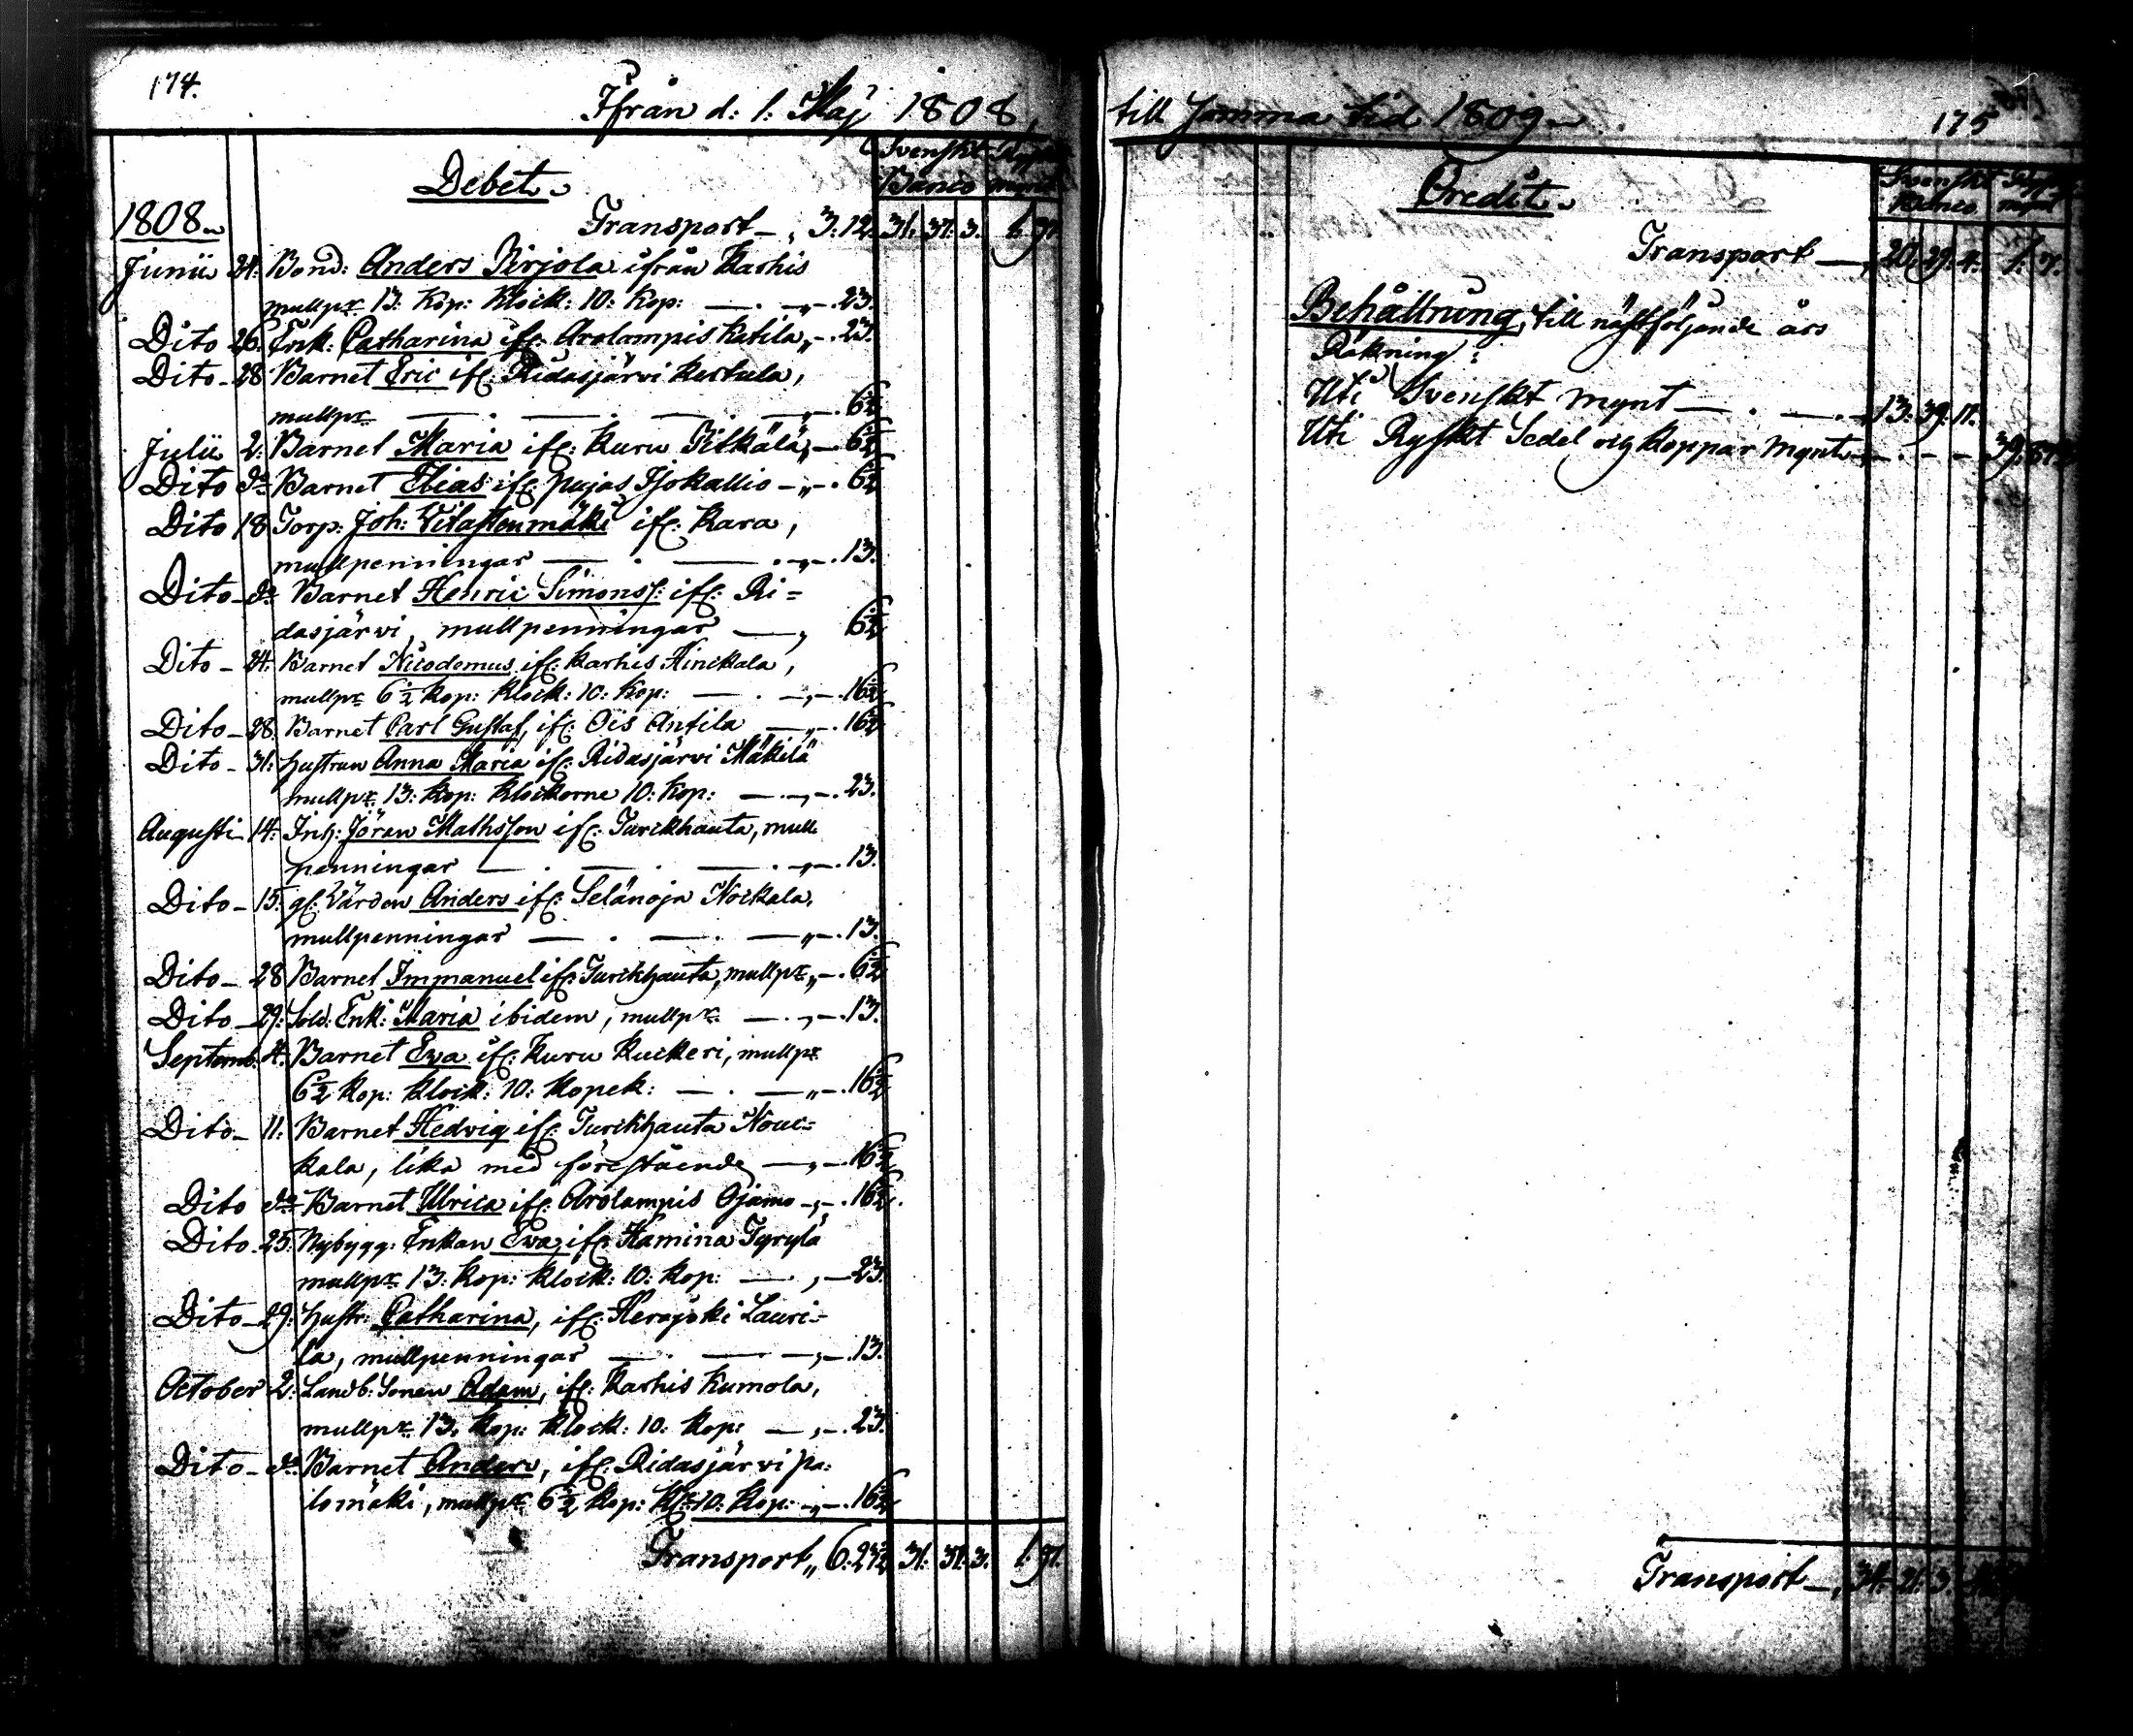 174.
Ifrån d: 1: Maj 1808,
Svenskt
Banco
Debet
1808
Transport — 3. 12. 31. 37. 3. 1. 91.
Junii 24: Bond: Anders Pirjola ifrån Karhis
mullpr 13: Kop: Klock: 10: Kop: — . — „ — . 23.
Dito 26: Enk: Catharina ifr: Arolampis Katila „ — . 23.
Dito — 28 Barnet Eric ifr: Ridasjärvi Kertula,
mullpr — . — . — . — „ — . 6½
Julii 2: Barnet Maria ifr: Kuru Pilkälä „ — 6½
Dito do Barnet Elias ifr: pujas Isokallio — „ — . 6½
Dito 18 Torp: Joh: ifr: Kara,
mullpenningar — . — . — „ — . 13.
Dito — do Barnet Henric Simons: ifr: Ri=
dasjärvi, mullpenningar — , 6½
Dito — 24: Barnet Nicodemus ifr: Karhis Hinckala,
mullpr 6½ Kop: Klock: 10: Kop: — . — „ — . 16½
Dito — 28. Barnet Carl Gustaf, ifr: Ois Antila — „ — . 16½
Dito — 31: hustrun Anna Maria ifr: Ridasjärvi Mäkilä
mullpr 13: Kop: Klockorne 10: Kop: — . — „ — . 23.
Augusti — 14: Inh: Jöran Mathsson ifr: Turckhauta, mull
penningar — . — . — . — „ — . 13.
Dito — 15: gl: Värden Anders ifr: Selänoja Nockala,
mullpenningar — . — . — „ — . 13.
Dito — 28 Barnet Immanuel ifr: Turckhauta, mullpr „ — . 6½
Dito — 29: Sold: Enk: Maria ibidem, mullpr — . „ — . 13.
Septemb. 4: Barnet Eva ifr: Kuru Kuckeri, mullpr
6½ Kop: Klock: 10: Kopek: — . — „ — . 16½
Dito — 11: Barnet Hedvig ifr: Turckhauta Nouc=
kala, lika med förestående — „ — . 16½
Dito do Barnet Ulrica ifr: Arolampis Ojamo — „ — . 16½
Dito 25: Nybygg: Enkan Eva, ifr: Hamina Tyrylä
mullpr 13: Kop: Klock: 10: Kop: — . , — 23.
Dito — 29: hustr: Catharina, ifr: Herajoki Lauri=
la, mullpenningar — . — — „ — . 13.
October 2: Landb: Sonen Adam, ifr: Karhis Kumola,
mullpr 13. Kop: Klock: 10: Kop: — , — . 23.
Dito — do Barnet Anders, ifr: Ridasjärvi pa=
lomäki, mullpr 6½ Kop: Kl: 10: Kop: — „ — . 16½
Transport „ 6. 27½ 31. 37. 3. 1. 91.
till samma tid 1809
175
Svenskt
Banco
Credit
Transport — , 20. 29. 4. 1. 7.
Behållning, till nästföljande års
Räkning:
Uti Svenskt mynt — . — . — 13. 39. 11.
Uti Ryskt Sedel och koppar mynt — . — — 39.
Transport — , 34. 21. 3.